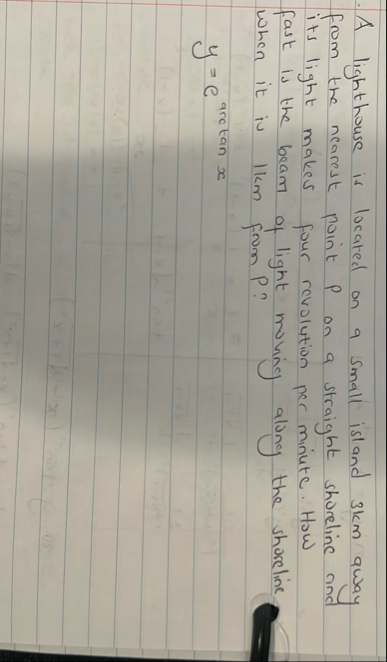 . A lighthouse is located on a small island 3km away
from the nearest point P on a straight shoreline and
its light makes four revolution per minute. How
fast is the beam of light moving along the shoreline
when it is 1km from P?
y = e^arctan x